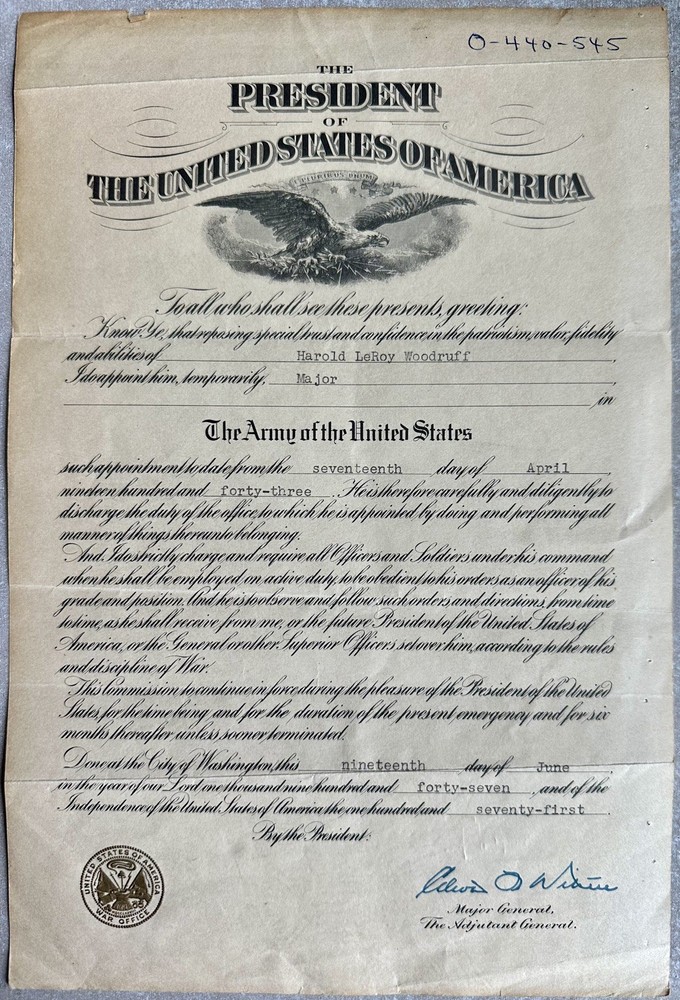 O-440-545
THE
PRESIDENT
OF
THE UNITED STATES OF AMERICA
E PLURIBUS UNUM
To all who shall see these presents, greeting:
Know Ye, that reposing special trust and confidence in the patriotism, valor, fidelity
and abilities of Harold LeRoy Woodruff,
I do appoint him, temporarily, Major,
in
The Army of the United States
such appointment to date from the seventeenth day of April,
nineteen hundred and forty-three. He is therefore carefully and diligently to
discharge the duty of the office to which he is appointed by doing and performing all
manner of things thereunto belonging.
And I do strictly charge and require all Officers and Soldiers under his command
when he shall be employed on active duty to be obedient to his orders as an officer of his
grade and position. And he is to observe and follow such orders and directions, from time
to time, as he shall receive from me, or the future President of the United States of
America, or the General or other Superior Officers set over him, according to the rules
and discipline of War.
This Commission to continue in force during the pleasure of the President of the United
States, for the time being and for the duration of the present emergency and for six
months thereafter, unless sooner terminated.
Done at the City of Washington, this nineteenth day of June
in the year of our Lord one thousand nine hundred and forty-seven, and of the
Independence of the United States of America the one hundred and seventy-first.
By the President:
UNITED STATES OF AMERICA
WAR OFFICE
Major General,
The Adjutant General.